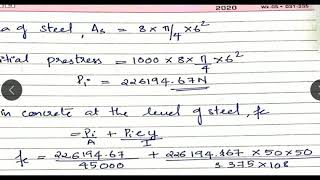 2020 Wk-05 • 031-335
a of steel, As = 8 × π/4 × 6²
itial prestress = 1000 × 8 × π/4 × 6²
Pi = 226194.67N
in concrete at the level of steel, fc
= Pi/A + Piey/I
fc = 226194.67/45000 + 226194.167 × 50 × 50/3.375 × 10⁸